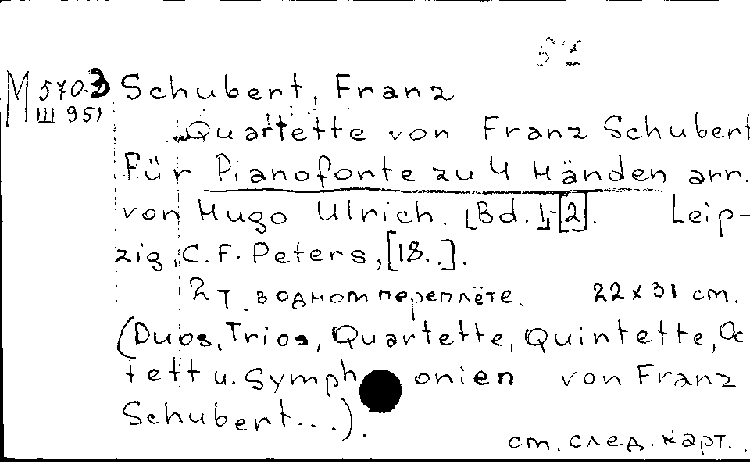 М 570-3 Schubert, Franz
Ш 951
Quartette von Franz Schubert
für Pianoforte zu 4 Händen arr.
von Hugo Ulrich. [Bd. 1]-[2]. Leip-
zig, C.F. Peters, [18..].
2 т. в одном переплёте. 22x31 cm.
(Duos, Trios, Quartette, Quintette, Oc
tett u. Symphonien von Franz
Schubert...).
см. след. карт.